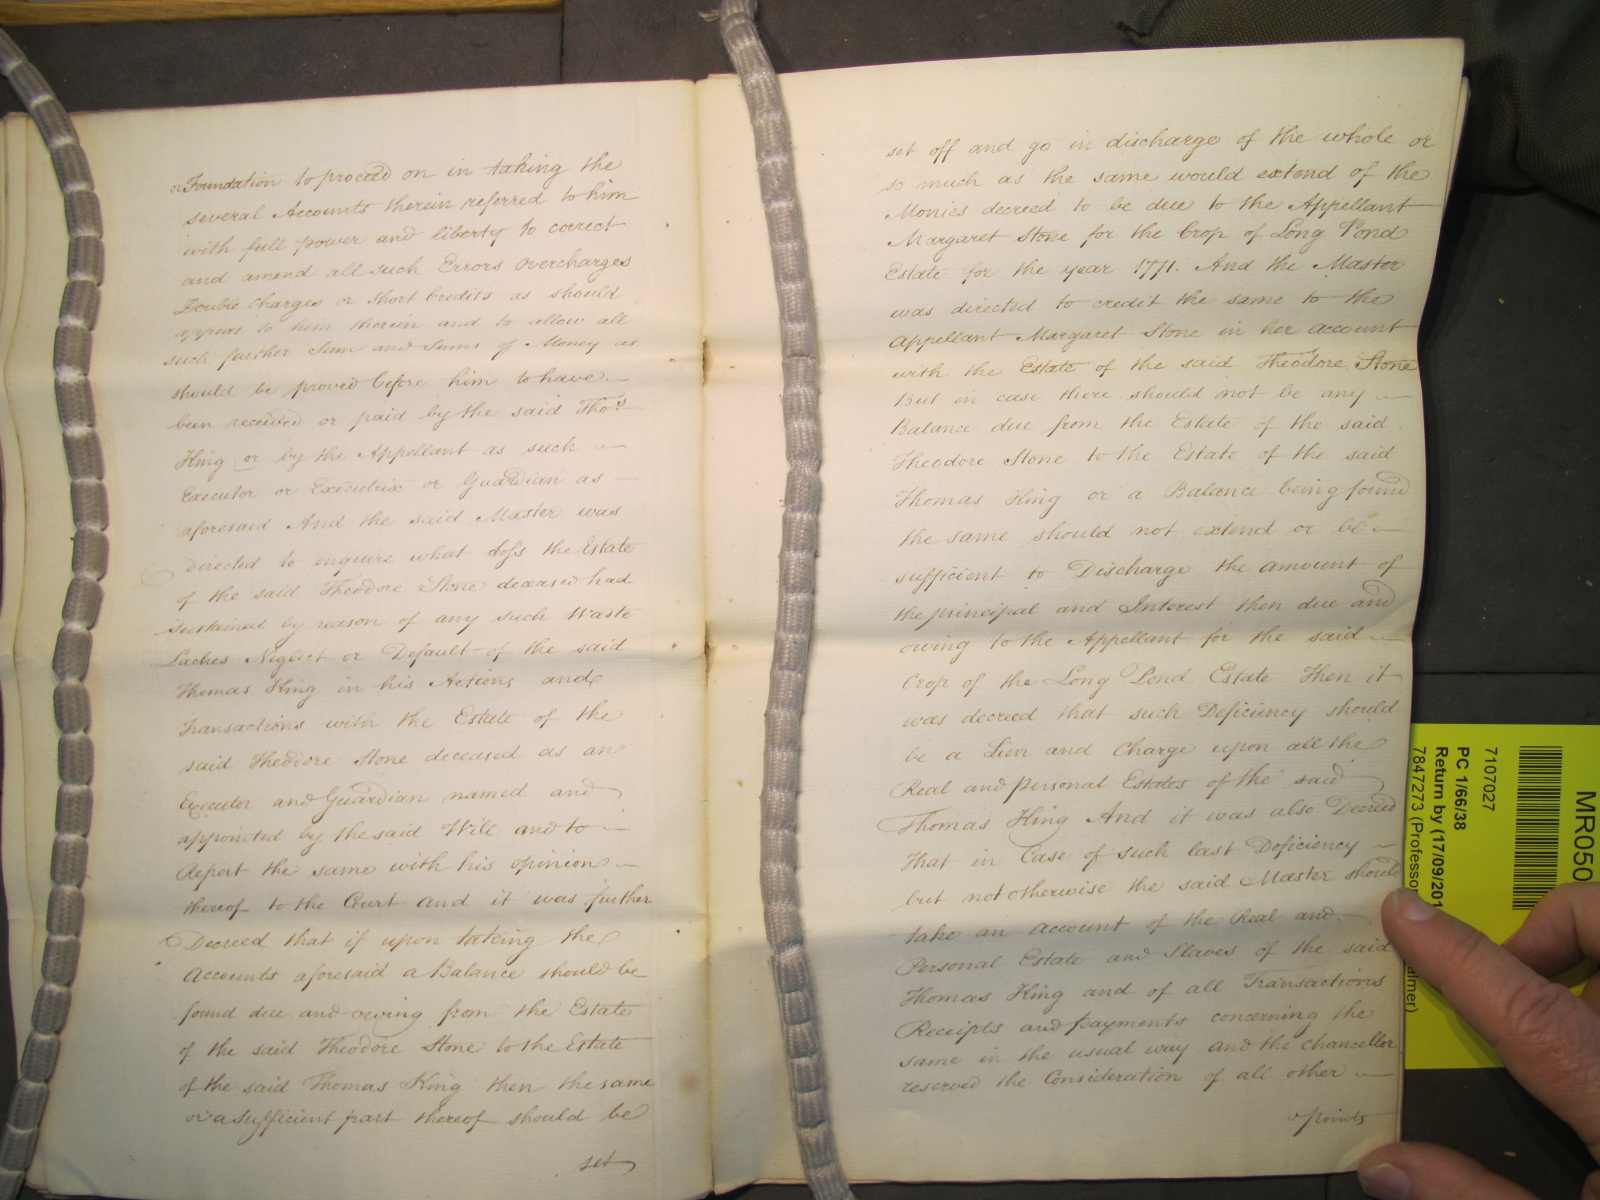 Foundation to proceed on in taking the
several Accounts therein referred to him
with full power and liberty to correct
and amend all such Errors Overcharges
Double Charges or Short Credits as should
appear to him therein and to allow all
such further Sum and Sums of Money as
should be proved before him to have
been received or paid by the said Thos
King or by the Appellant as such
Executor or Executrix or Guardian as
aforesaid And the said Master was
directed to enquire what Loss the Estate
of the said Theodore Stone deceased had
sustained by reason of any such Waste
Laches Neglect or Default of the said
Thomas King in his Actions and
Transactions with the Estate of the
said Theodore Stone deceased as an
Executor and Guardian named and
appointed by the said Will and to
Report the same with his opinion
thereof to the Court and it was further
Decreed that if upon taking the
Accounts aforesaid a Balance should be
found due and owing from the Estate
of the said Theodore Stone to the Estate
of the said Thomas King then the same
or a Sufficient part thereof should be
set
set off and go in discharge of the whole or
so much as the same would extend of the
Monies decreed to be due to the Appellant
Margaret Stone for the Crop of Long Pond
Estate for the year 1771. And the Master
was directed to credit the same to the
Appellant Margaret Stone in her account
with the Estate of the said Theodore Stone
But in case there should not be any
Balance due from the Estate of the said
Theodore Stone to the Estate of the said
Thomas King or a Balance being found
the same should not extend or be
sufficient to Discharge the amount of
the principal and Interest then due and
owing to the Appellant for the said
Crop of the Long Pond Estate Then it
was decreed that such Deficiency should
be a Lien and Charge upon all the
Real and Personal Estates of the said
Thomas King And it was also Decreed
That in Case of such last Deficiency
but not otherwise the said Master should
take an account of the Real and
Personal Estate and Slaves of the said
Thomas King and of all Transactions
Receipts and payments concerning the
same in the usual way and the Chancellor
reserved the Consideration of all other
points
MR050
7107027
PC 1/66/38
Return by (17/09/201
7847273 (Professor